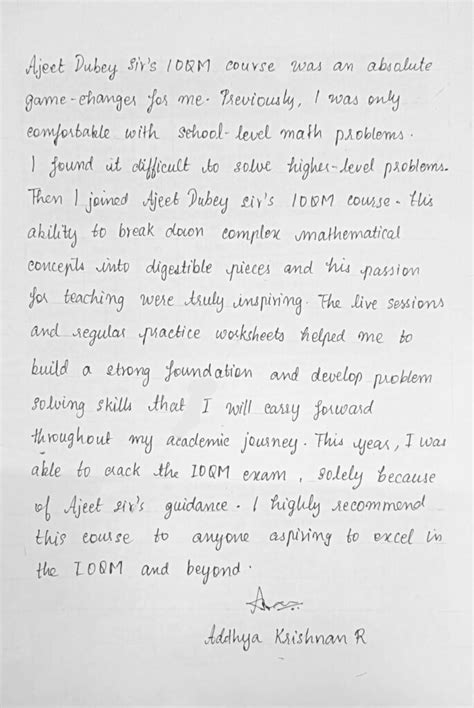 Ajeet Dubey Sir's IOQM course was an absolute
game-changer for me. Previously, I was only
comfortable with school-level math problems.
I found it difficult to solve higher-level problems.
Then I joined Ajeet Dubey sir's IOQM course. His
ability to break down complex mathematical
concepts into digestible pieces and his passion
for teaching were truly inspiring. The live sessions
and regular practice worksheets helped me to
build a strong foundation and develop problem
solving skills that I will carry forward
throughout my academic journey. This year, I was
able to crack the IOQM exam, solely because
of Ajeet sir's guidance. I highly recommend
this course to anyone aspiring to excel in
the IOQM and beyond.
Addhya Krishnan R